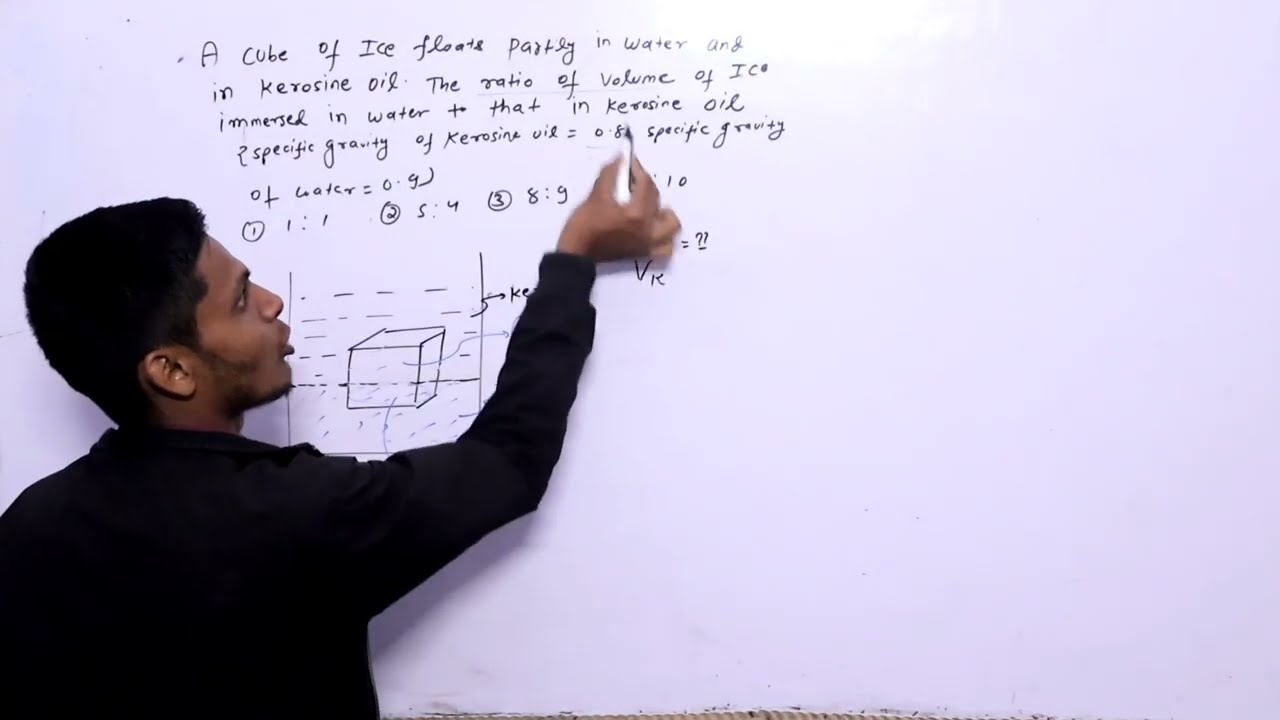 A cube of Ice floats partly in water and
in kerosine oil. The ratio of volume of Ice
immersed in water to that in kerosine oil
{specific gravity of kerosine oil = 0.8, specific gravity
of water = 0.9)
① 1 : 1 ② 5 : 4 ③ 8 : 9 : 10
= ??
VK